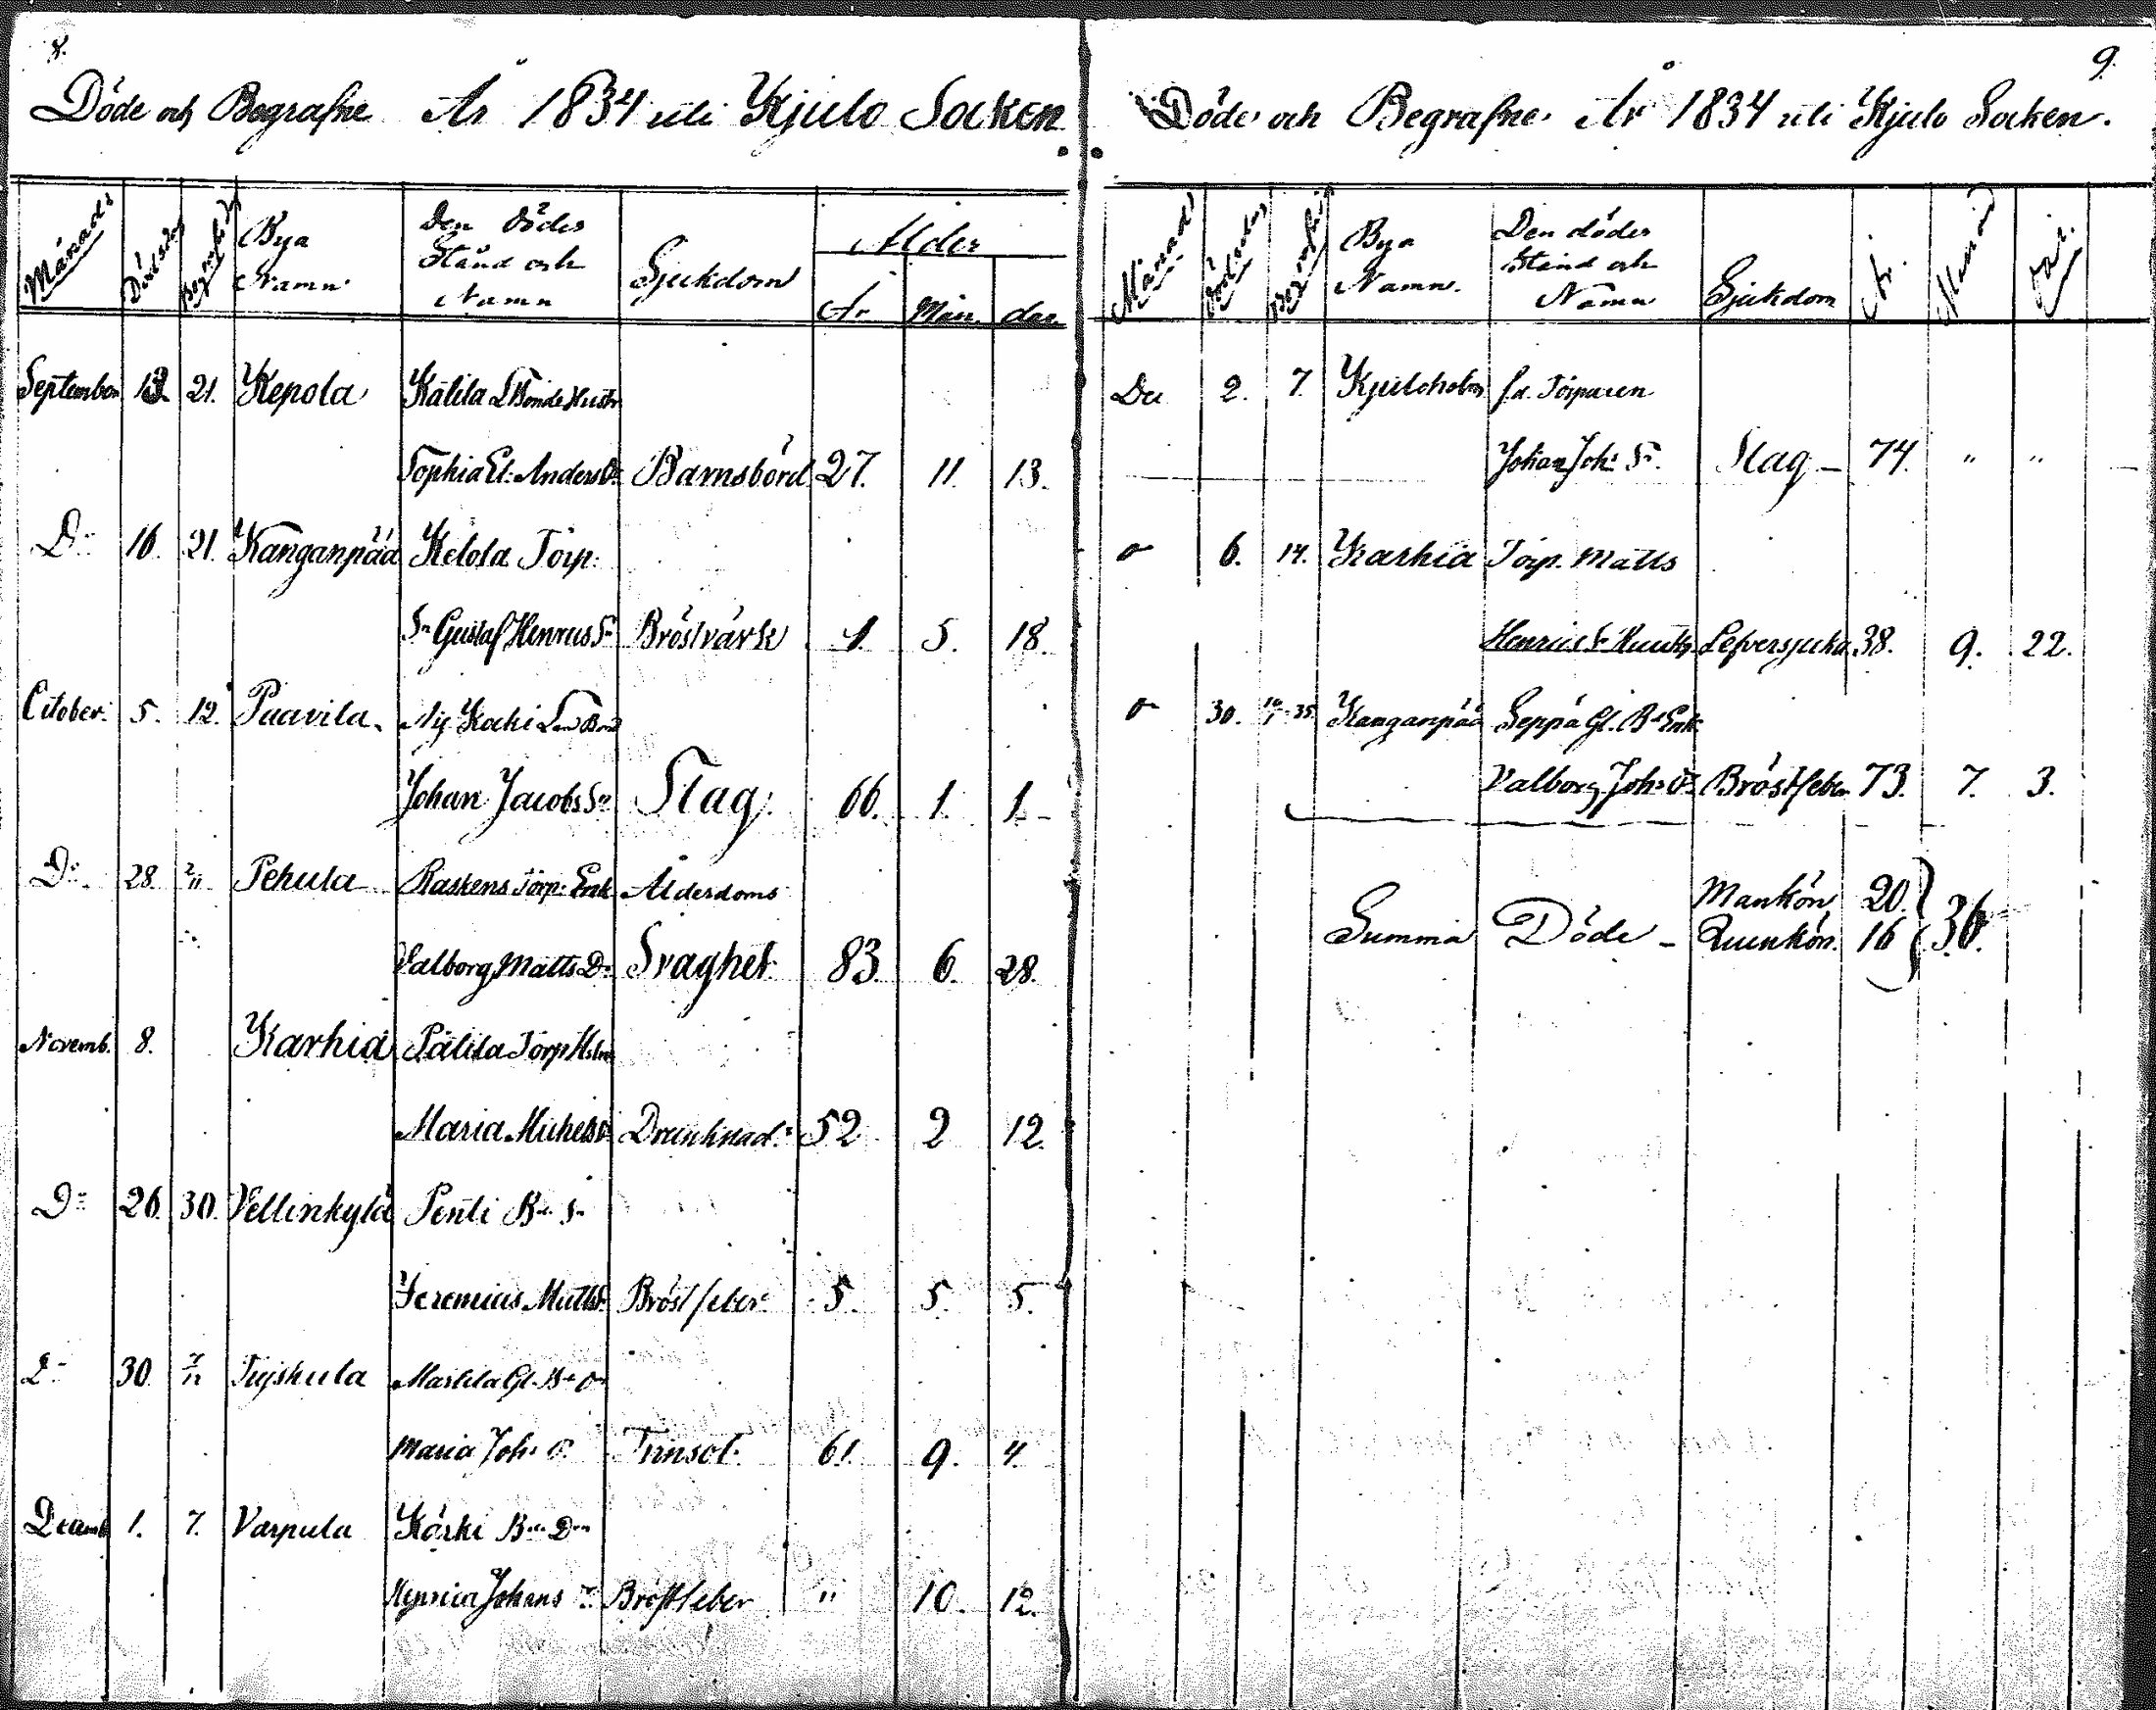 8.
Döde och Begrafne År 1834 uti Kjulo Socken
Månad Dödsdag Begrafn.dag Bya Namn Den Dödes Stånd och Namn Sjukdom Ålder År Mån. dar
September 13. 21. Kepola Kälilä
Sophia El: Anders Dr Barnsbörd 27. 11. 13.
Do 16. 21. Kanganpää Kelola Torp:
Sn Gustaf Henrics Sn Bröstvärk 1. 5. 18.
October 5. 12. Paavila
Johan Jacobs Sn Slag 66. 1. 1.
Do 28. 2/11 Pehula Raskens Torp: Enk Ålderdoms
Valborg Matts Dr Svaghet 83. 6. 28.
Novemb. 8. Karhia Pälilä Torp
Maria Michels Dr Drunknad 52 2 12
Do 26. 30. Vellinkylä Penti Bde Sn
Jeremias Matts Sn Bröstfeber 5. 5. 5.
Do 30. 7/12 Tryskula Marlila Gl. Bde
Maria Joh: Dr Tvinsot 61. 9. 4.
Decemb 1. 7. Varpula Körki Bde Dr
Henrica Johans Dr Bröstfeber " 10. 12.
9.
Döde och Begrafne År 1834 uti Kjulo Socken.
Månad Dödsdag Begrafn.dag Bya Namn. Den dödes Stånd och Namn Sjukdom År. Månad dar.
Dec 2. 7. Kjuloholm f.d. Torparen
Johan Joh: Sn. Slag – 74. " "
6. 14. Karhia Torp. Matts
Henrics Sn Lefversjuka 38. 9. 22.
30. Kanganpää Seppä Gl. Bde Enk
Valborg Joh: Dr Bröstfeber 73. 7. 3.
Mankön 20.
Summa Döde – 36.
Quinkön. 16